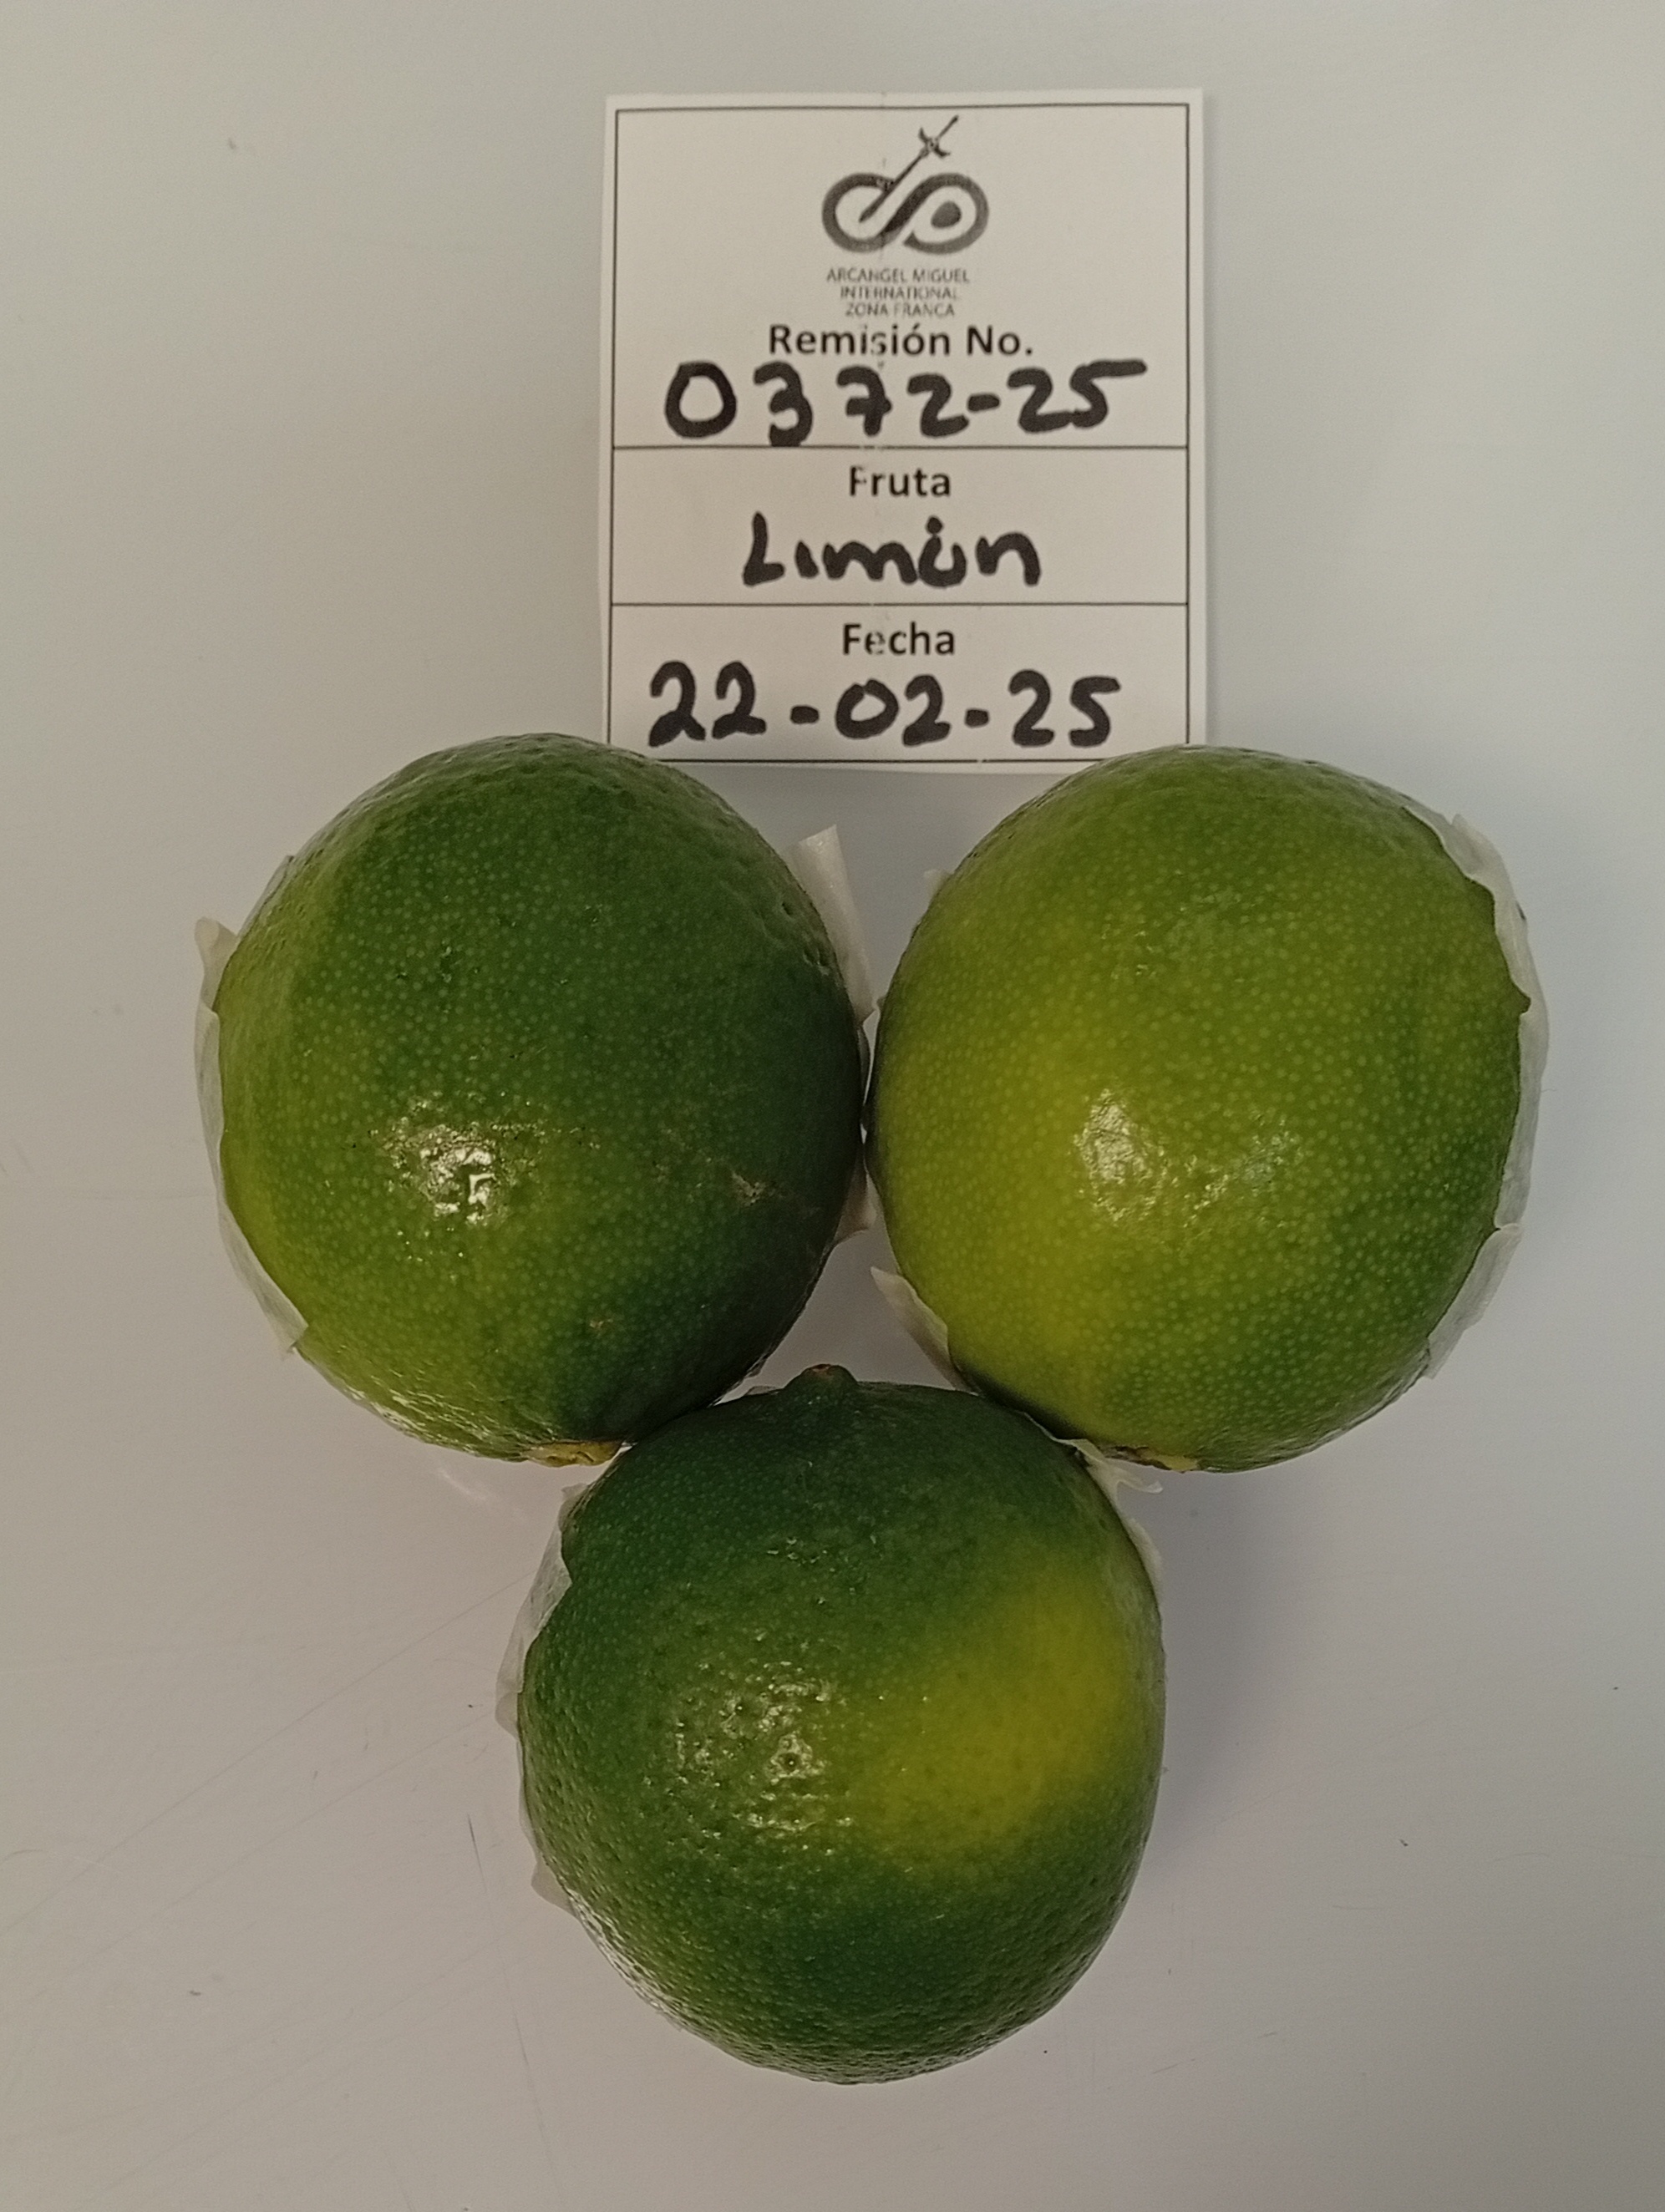 ARCANGEL MIGUEL
INTERNATIONAL
ZONA FRANCA
Remisión No.
0372-25
Fruta
Limón
Fecha
22-02-25